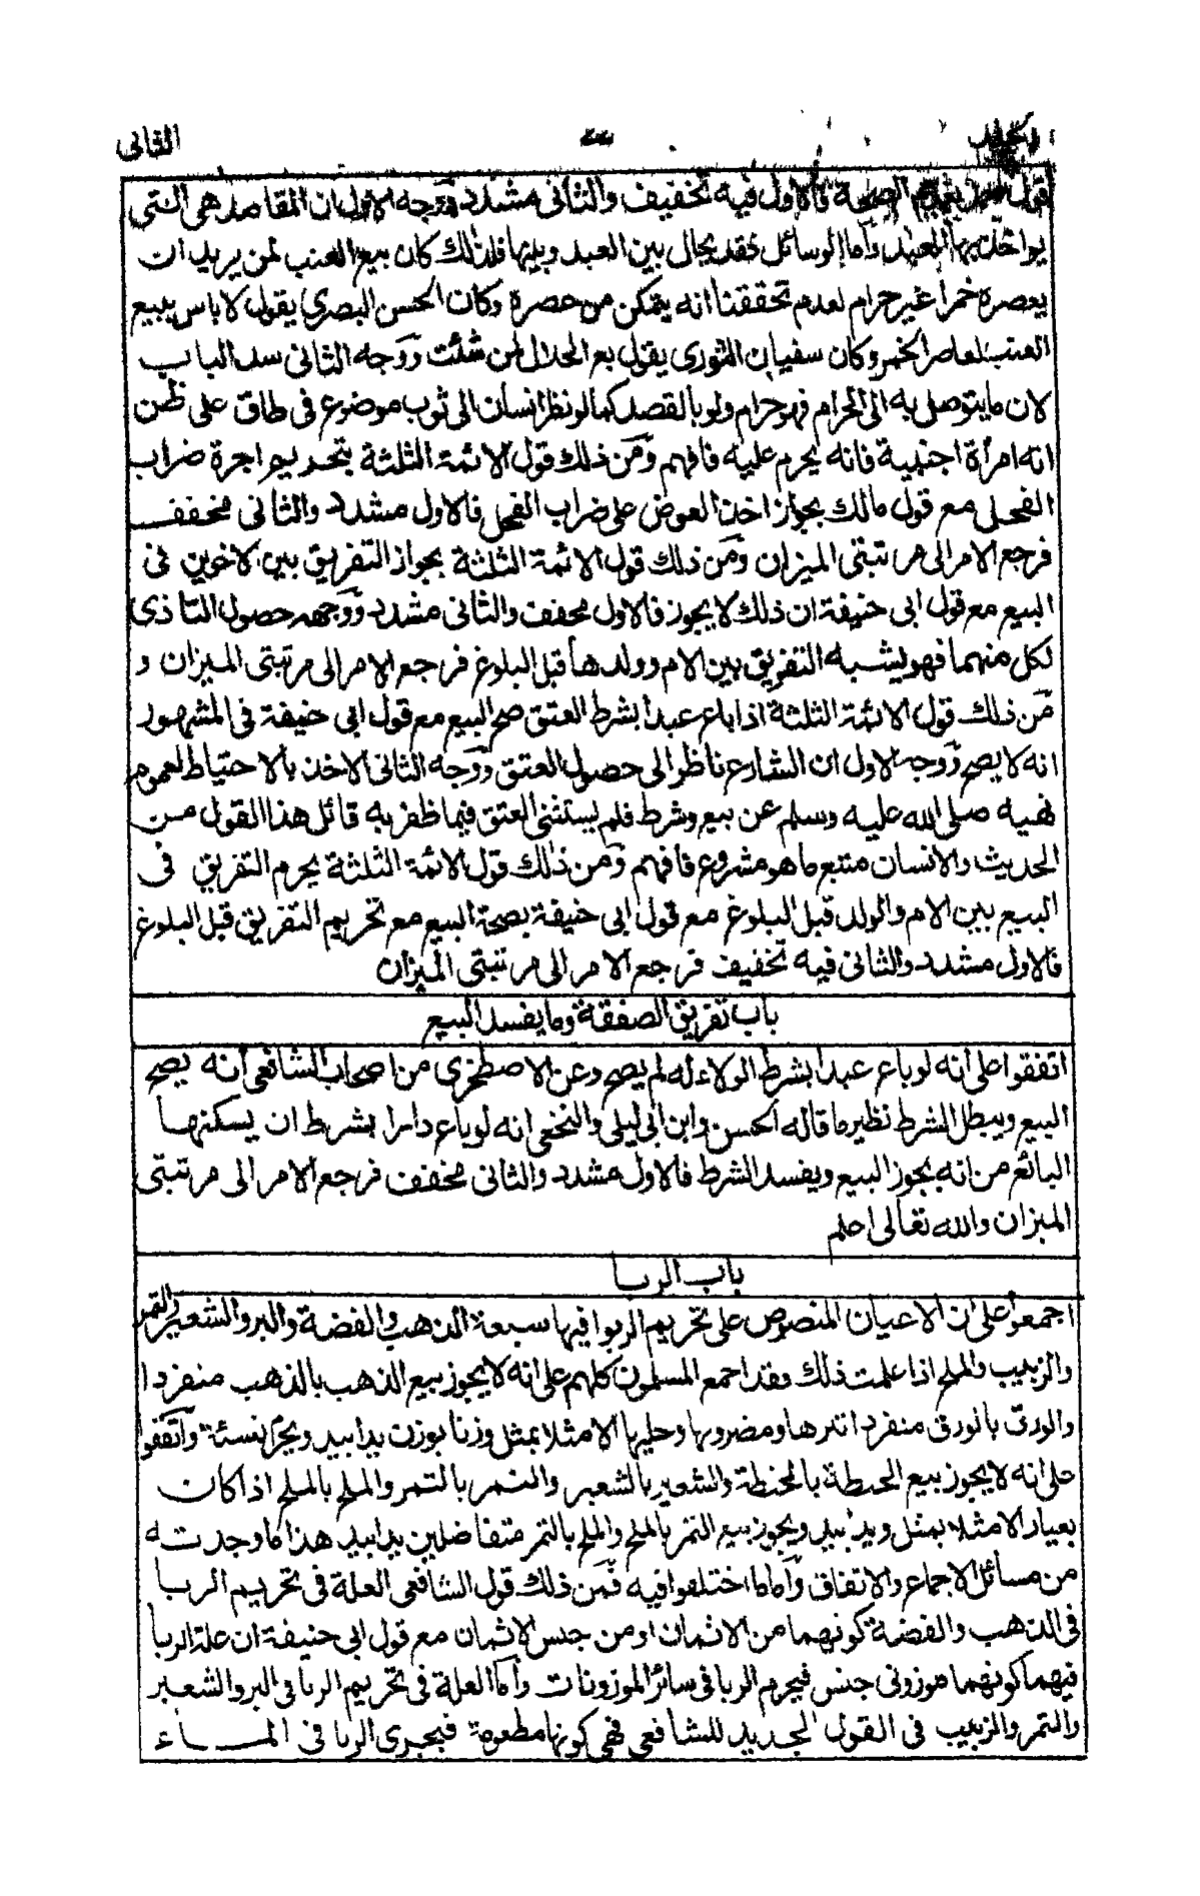 الثانى
فالاول فيه تخفيف والثانى مشدد ووجه الاول ان المقاصد هى التى
يواخذ بها العبد واما الوسائل فقد يحال بين العبد وبينها فلذلك كان بيع العنب لمن يريد ان
يعصره خمرا غير حرام لعدم تحققنا انه يتمكن من عصره وكان الحسن البصري يقول لا باس ببيع
العنب لعاصر الخمر وكان سفيان الثورى يقول بع الحلال لمن شئت ووجه الثانى سد الباب
لان ما يتوصل به الى الحرام فهو حرام ولو بالقصد كما لو نظر انسان الى ثوب موضوع فى طاق على ظن
انه امرأة اجنبية فانه يحرم عليه فافهم ومن ذلك قول الائمة الثلثة بتحديم اجرة ضراب
الفحل مع قول مالك بجواز اخذ العوض على ضراب الفحل فالاول مشدد والثانى مخفف
فرجع الامر الى مرتبتى الميزان ومن ذلك قول الائمة الثلثة بجواز التفريق بين الاخوين فى
البيع مع قول ابى حنيفة ان ذلك لا يجوز فالاول مخفف والثانى مشدد ووجهه حصول التاذى
لكل منهما فهو يشبه التفريق بين الام وولدها قبل البلوغ فرجع الامر الى مرتبتى الميزان و
من ذلك قول الائمة الثلثة اذا باع عبدا بشرط العتق صح البيع مع قول ابى حنيفة فى المشهور
انه لا يصح ووجه الاول ان الشارع ناظر الى حصول العتق ووجه الثانى الاخذ بالاحتياط لعموم
نهيه صلى الله عليه وسلم عن بيع وشرط فلم يستثنى العتق فيما ظفر به قائل هذا القول من
الحديث والانسان متبع ما هو مشروع فافهم ومن ذلك قول الائمة الثلثة يحرم التفريق فى
البيع بين الام والولد قبل البلوغ مع قول ابى حنيفة بصحة البيع مع تحريم التفريق قبل البلوغ
فالاول مشدد والثانى فيه تخفيف فرجع الامر الى مرتبتى الميزان
باب تفريق الصفقة وما يفسد البيع
اتفقوا على انه لو باع عبدا بشرط الولاء له لم يصح وعن الاصطخرى من اصحاب الشافعى انه يصح
البيع ويبطل الشرط نظير ما قاله الحسن وابن ابى ليلى والنخعى انه لو باع دارا بشرط ان يسكنها
البائع من انه يجوز البيع ويفسد الشرط فالاول مشدد والثانى مخفف فرجع الامر الى مرتبتى
الميزان والله تعالى اعلم
باب الربا
اجمعوا على ان الاعيان المنصوص على تحريم الربوا فيها سبعة الذهب والفضة والبر والشعير والتمر
والزبيب والملح اذا علمت ذلك فقد اجمع المسلمون كلهم على انه لا يجوز بيع الذهب بالذهب منفردا
والورق بالورق منفردا تبرها ومضروبها وحليها الا مثلا بمثل وزنا بوزن يدا بيد ويحرم نسئة واتفقوا
على انه لا يجوز بيع الحنطة بالحنطة والشعير بالشعير والتمر بالتمر والملح بالملح اذا كان
بعيار الا مثلا بمثل ويدا بيد ويجوز بيع التمر بالملح والملح بالتمر متفاضلين يدا بيد هذا ما وجدته
من مسائل الاجماع والاتفاق واما ما اختلفوا فيه فمن ذلك قول الشافعى العلة فى تحريم الربا
فى الذهب والفضة كونهما من الاثمان او من جنس الاثمان مع قول ابى حنيفة ان علة الربا
فيهما كونهما موزونى جنس فيحرم الربا فى سائر الموزونات واما العلة فى تحريم الربا فى البر والشعير
والتمر والزبيب فى القول الجديد للشافعى فهى كونها مطعومة فيجرى الربا فى الماء